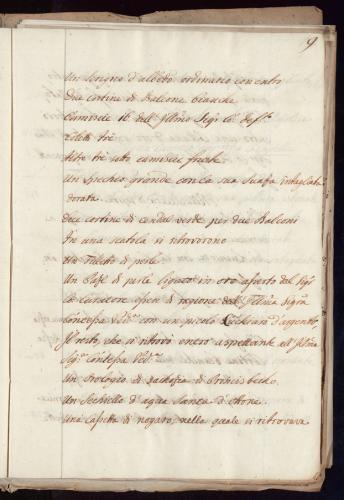 9
Un scrigno d'albeo ordinario con entro
Due cortine di Balcone bianche
Camiscie 16 dell' Illmo Sigr Co:
tre
tre camiscie fruste
Un Specchio grande con la sua Suasa intagliata
dorata
Due cortine di cendal verde per due Balconi
In una scatola si ritrovorono
Un di perle
Un di perle in oro asserto dal Sigr
Co: esser di ragione dell' Illma Sigra
Contessa Vedva con un picolo d'argento,
Il resto, che si ritrovi entro aspettante all' Illma
Sigra Contessa Vedva
Un Orologio di sachoza di Princisbech
Un Sechiello d'aqua Santa d'ottone
Una Cassetta di nogaro, nella quale si ritrovava